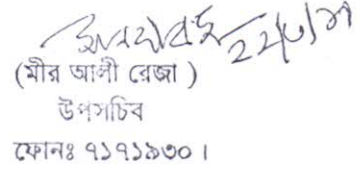 (মীর আলী রেজা )
উপসচিব
ফোনঃ ৭১৭১৯৩০ ।